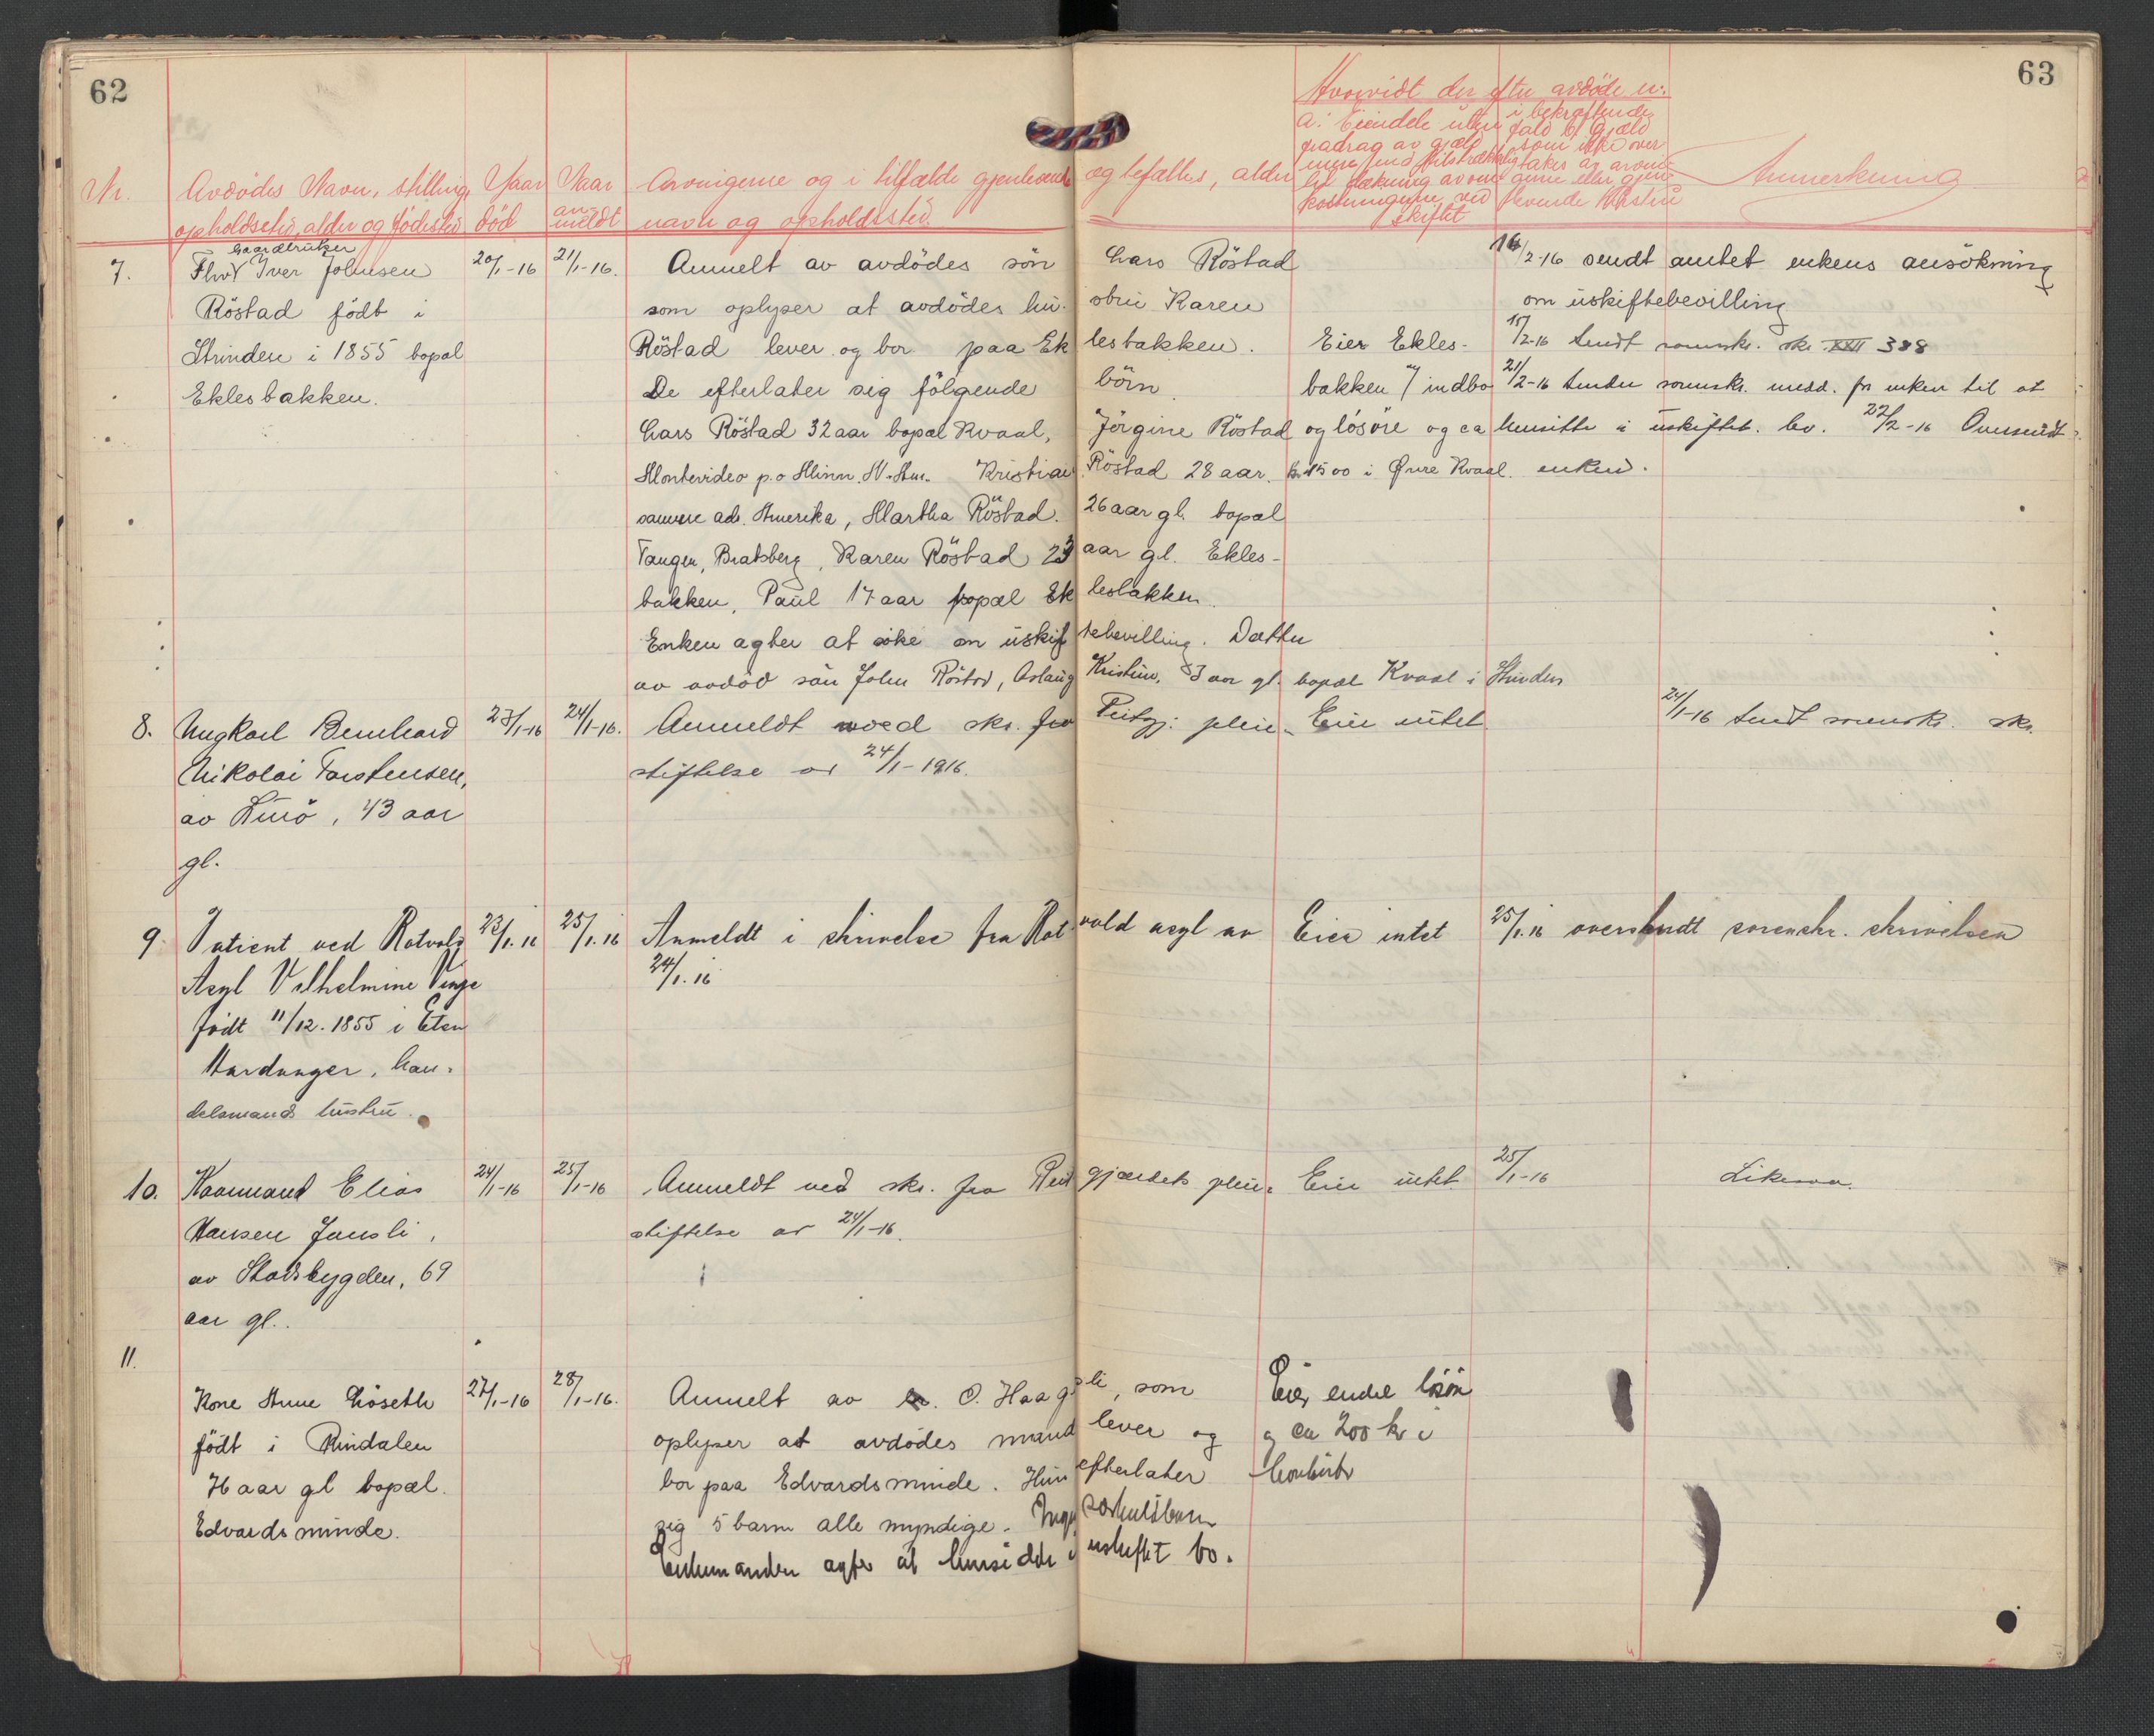 62
63
Nr.
Avdödes Navn, stilling,
opholdssted, alder og födested
Naar
död
Naar
an-
meldt
Arvingerne og i tilfælde gjenlevende egtefælles, alder
navn og opholdssted.
Hvorvidt der efter avdöde er:
a: Eiendele uten
fradrag av gjæld
skiftet
i bekræftende
fald b) Gjæld
som ikke over
takes av arvin-
gerne eller gjen-
levende
Anmerkning
7.
Gaardbruker
Fhv. Iver Johnsen
Röstad födt i
Strinden i 1855 bopal
Eklesbakken.
20/1-16
21/1-16.
Anmelt av avdödes sön Lars Röstad
som oplyser at avdödes hustru Karen
Röstad lever og bor paa Eklesbakken.
De efterlater sig fölgende börn
Lars Röstad 32 aar bopal Kvaal, Jörgine Röstad
Montevideo p.o Minn. N. Am. Kristian Röstad 28 aar.
samme adr. Amerika, Martha Röstad. 26 aar gl. bopal
Tangen, Bratsberg, Karen Röstad 23 aar gl. Ekles-
bakken, Paul 17 aar bopal Eklesbakken.
Enken agter at söke om uskiftebevilling. Datter
av avdöd sön John Röstad, Aslaug Kristine, 3 aar gl. bopal Kvaal i Strinden
Eier Ekles-
bakken og indbo
og lösöre og ca
kr 1500 i Övre Kvaal.
16/2-16 sendt amtet enkens ansökning
om uskiftebevilling
17/2-16 Sendt sorenskr. skr. XXII 388
21/2-16 Sender sorenskr. medd. fra enken til at
hensitte i uskiftet bo. 22/2-16 Oversendt
enken.
8.
Ungkarl Bernhard
Nikolai Torstensen,
av 43 aar
gl.
23/1-16
24/1-16.
Anmeldt ved skr. fra pleie-
stiftelse av 24/1-1916.
Eier intet
24/1-16 Sendt sorenskr. skr.
9.
Patient ved Rotvold
Asyl Vilhelmine Vinje
födt 11/12. 1855 i Eten
Hardanger, han-
delsmands hustru.
23/1.16
25/1.16
Anmeldt i skrivelse fra Rotvold asyl av
24/1.16
Eier intet
25/1.16 oversendt sorenskr. skrivelsen
10.
Kaarmand Elias
Hansen Jamsli,
av Stadsbygden, 69
aar gl.
24/1-16
25/1-16
Anmeldt ved skr. fra Reitgjærdets pleie-
stiftelse av 24/1-16.
Eier intet
25/1-16
Likesaa.
11.
Kone Anne Löseth
födt i Rindalen
76 aar gl bopæl.
Edvardsminde.
27/1-16
28/1-16.
Anmelt av O. Haagsli, som
oplyser at avdödes mand lever og
bor paa Edvardsminde. Hun efterlater
sig 5 barn alle myndige. Ingen særkulsbarn
Enkemanden agter at hensidde i uskiftet bo.
Eier endel lösöre
og ca 200 kr i